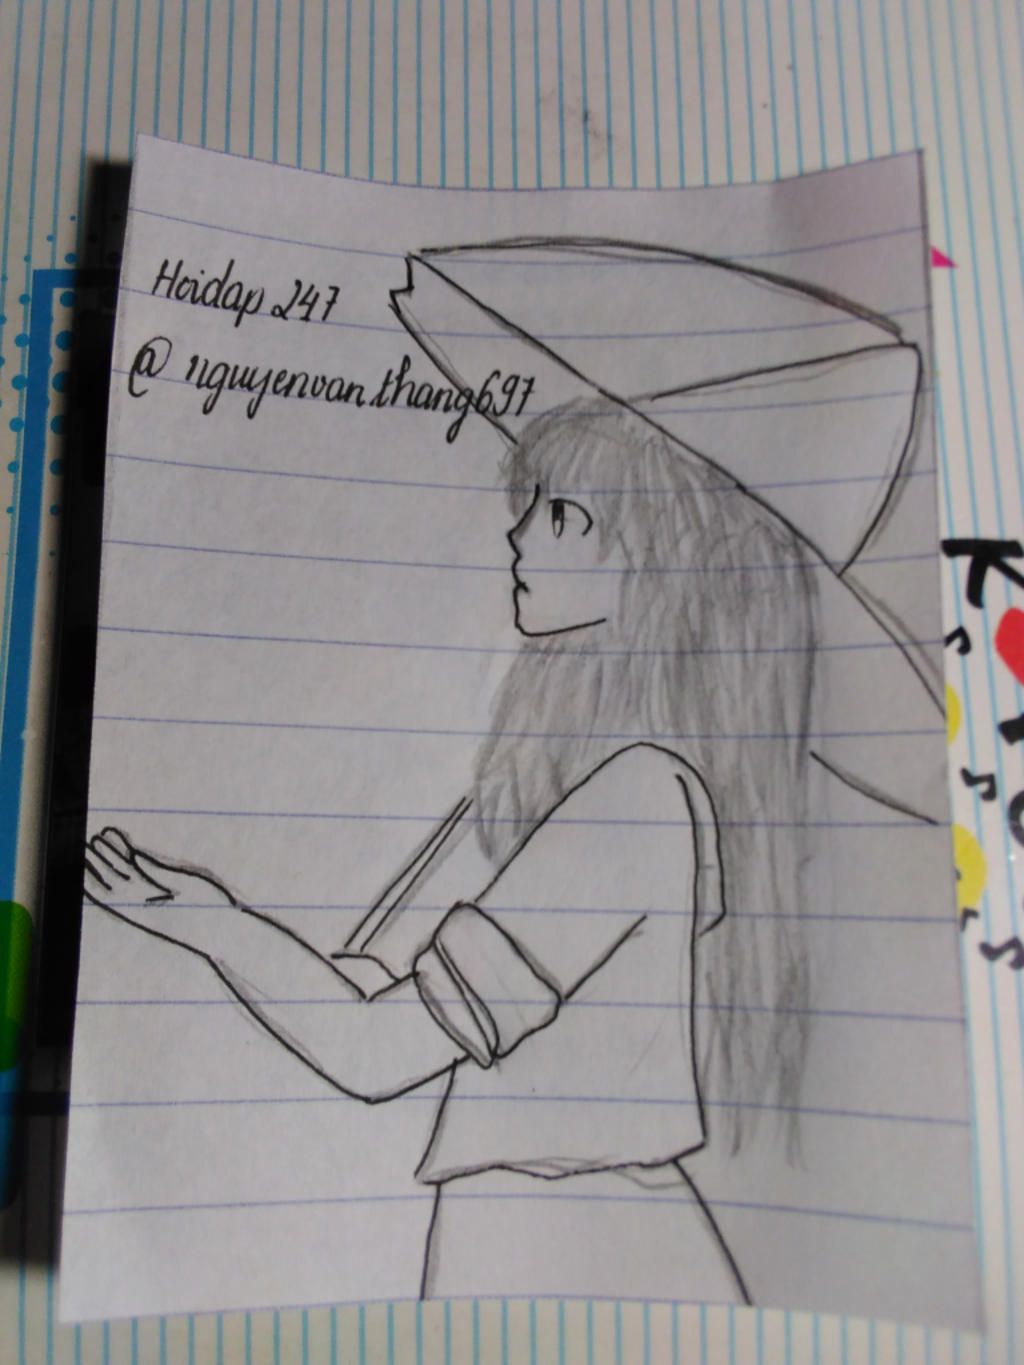 Hoidap 247
@ nguyenvanthang697
K
s
s
s